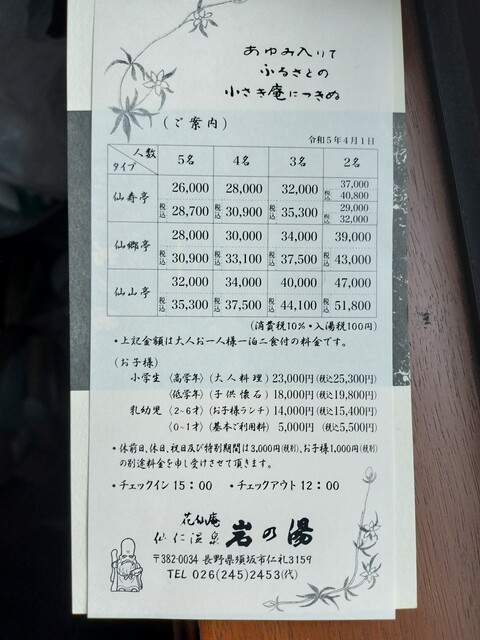 あゆみ入りて
ふるさとの
小さき庵につきぬ
(ご案内)
令和5年4月1日
人数 タイプ 5名 4名 3名 2名
仙寿亭 26,000 28,000 32,000 37,000
税込 40,800
税込 28,700 税込 30,900 税込 35,300 29,000
税込 32,000
仙郷亭 28,000 30,000 34,000 39,000
税込 30,900 税込 33,100 税込 37,500 税込 43,000
仙山亭 32,000 34,000 40,000 47,000
税込 35,300 税込 37,500 税込 44,100 税込 51,800
(消費税10%・入湯税100円)
・上記金額は大人お一人様一泊二食付の料金です。
(お子様)
小学生 〈高学年〉(大人料理) 23,000円(税込25,300円)
〈低学年〉(子供懐石) 18,000円(税込19,800円)
乳幼児 〈2~6才〉(お子様ランチ) 14,000円(税込15,400円)
〈0~1才〉(基本ご利用料) 5,000円 (税込5,500円)
・休前日、休日、祝日及び特別期間は3,000円(税別)、お子様1,000円(税別)
の別途料金を申し受けさせて頂きます。
・チェックイン 15:00 ・チェックアウト 12:00
花仙庵
仙仁温泉 岩の湯
〒382-0034 長野県須坂市仁礼3159
TEL 026(245)2453(代)